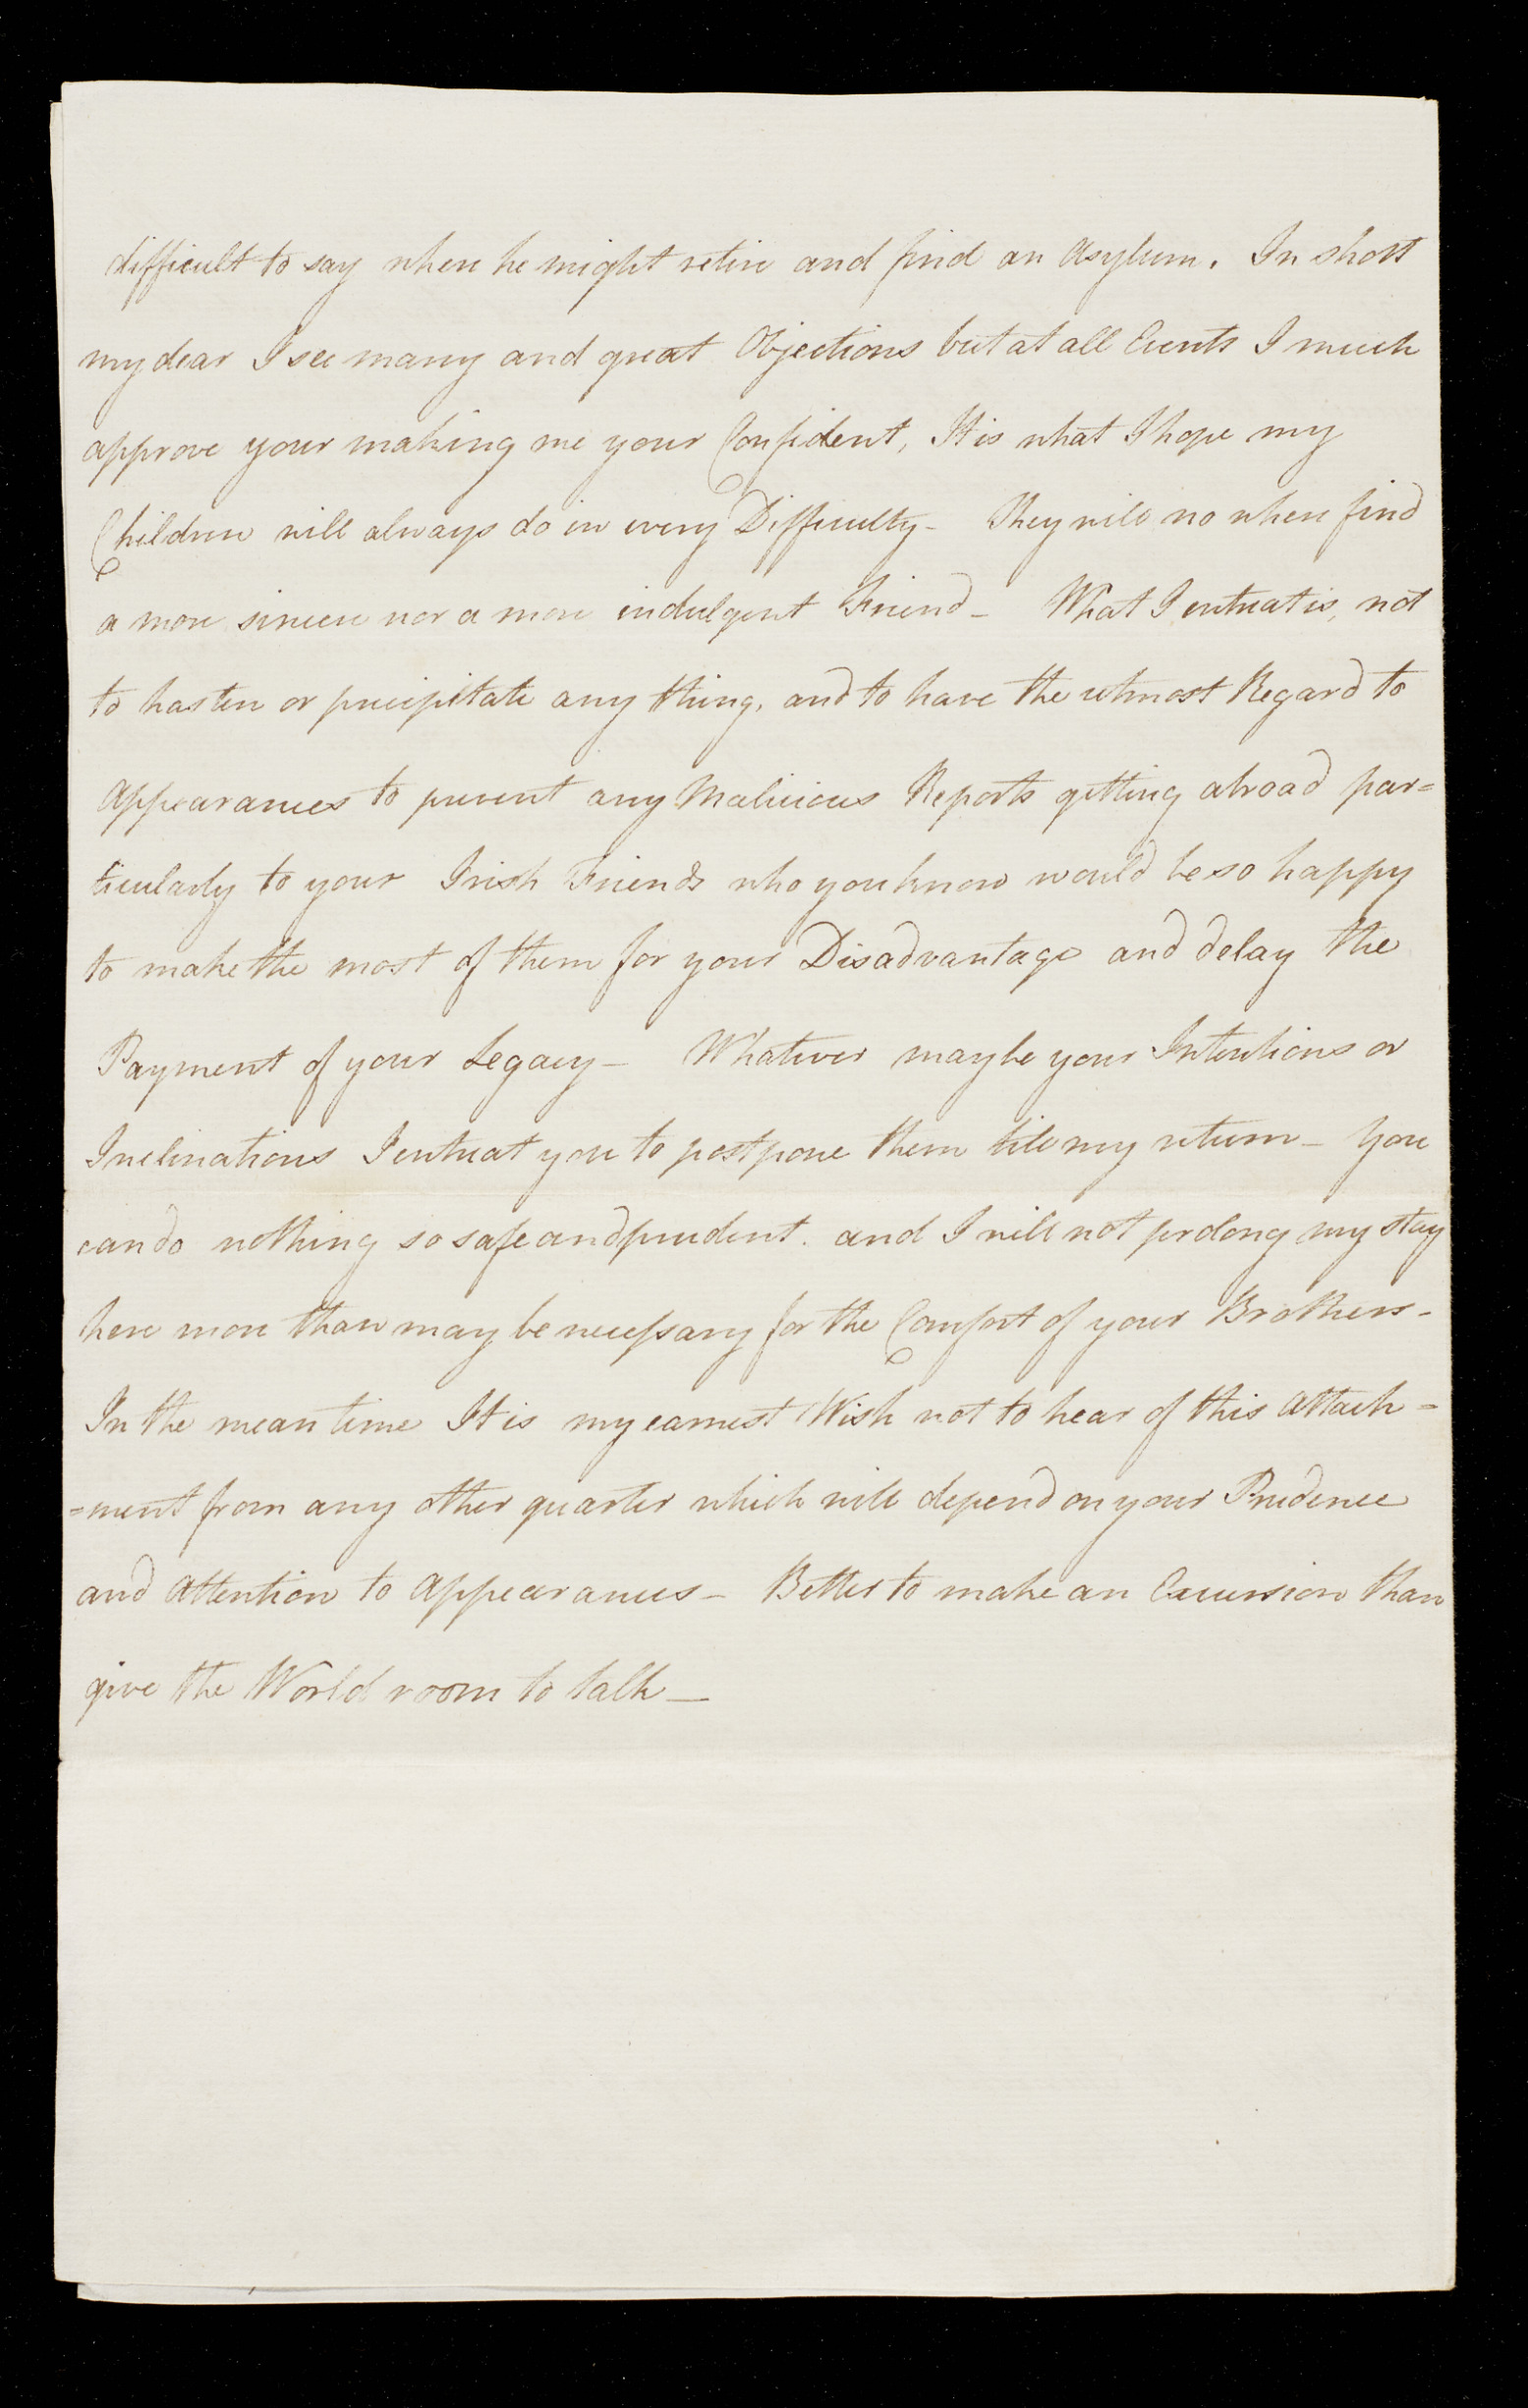 difficult to say where he might retire and find an Asylum. In short
my dear I see many and great Objections but at all Events I much
approve your making me your Confident, It is what I hope my
Children will always do in every Difficulty - They will no where find
a more sincere nor a more indulgent Friend - What I entreat is, not
to hasten or precipitate any thing, and to have the utmost Regard to
Appearances to prevent any Malicious Reports getting abroad par=
ticularly to your Irish Friends who you know would be so happy
to make the most of them for your Disadvantage and delay the
Payment of your Legacy - Whatever may be your Intentions or
Inclinations I entreat you to postpone them till my return - You
can do nothing so safe and prudent. and I will not prolong my stay
here more than may be necessary for the Comfort of your Brothers -
In the mean time It is my earnest Wish not to hear of this Attach=
=ment from any other quarter which will depend on your Prudence
and Attention to Appearances - Better to make an Excursion than
give the World room to talk -